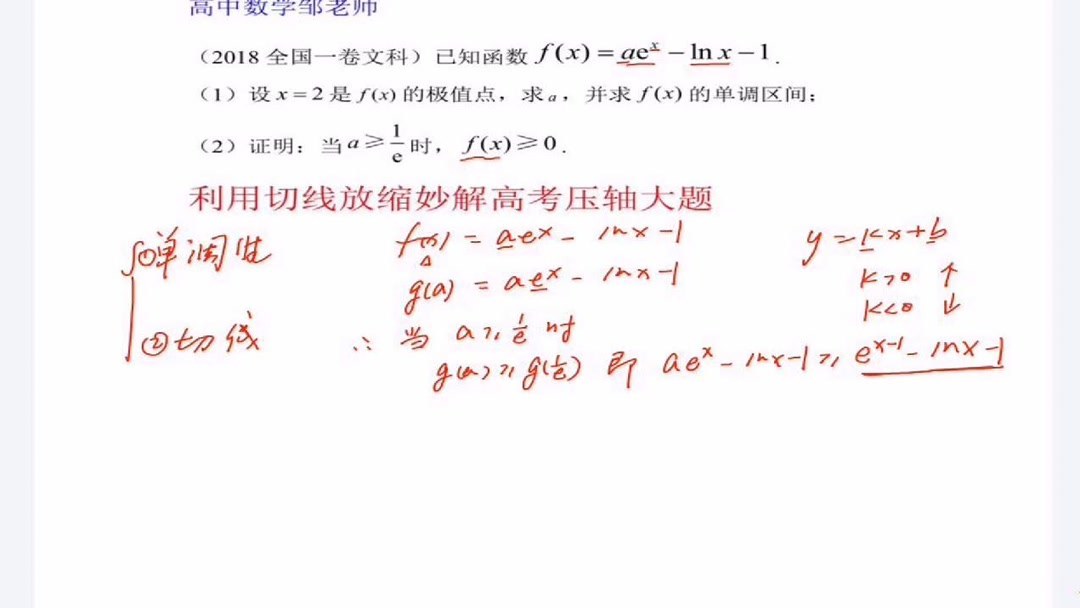 高中数学邹老师
（2018 全国一卷文科）已知函数 f(x) = ae^x − ln x − 1 .
（1）设 x = 2 是 f(x) 的极值点，求 a ，并求 f(x) 的单调区间；
（2）证明：当 a ≥ 1/e 时， f(x) ≥ 0 .
利用切线放缩妙解高考压轴大题
①单调性
f(x) = ae^x − ln x − 1
y = kx + b
g(a) = ae^x − ln x − 1
k > 0 ↑
k < 0 ↓
②切线
∴ 当 a ≥ 1/e 时
g(a) ≥ g(1/e) 即 ae^x − ln x − 1 ≥ e^{x−1} − ln x − 1